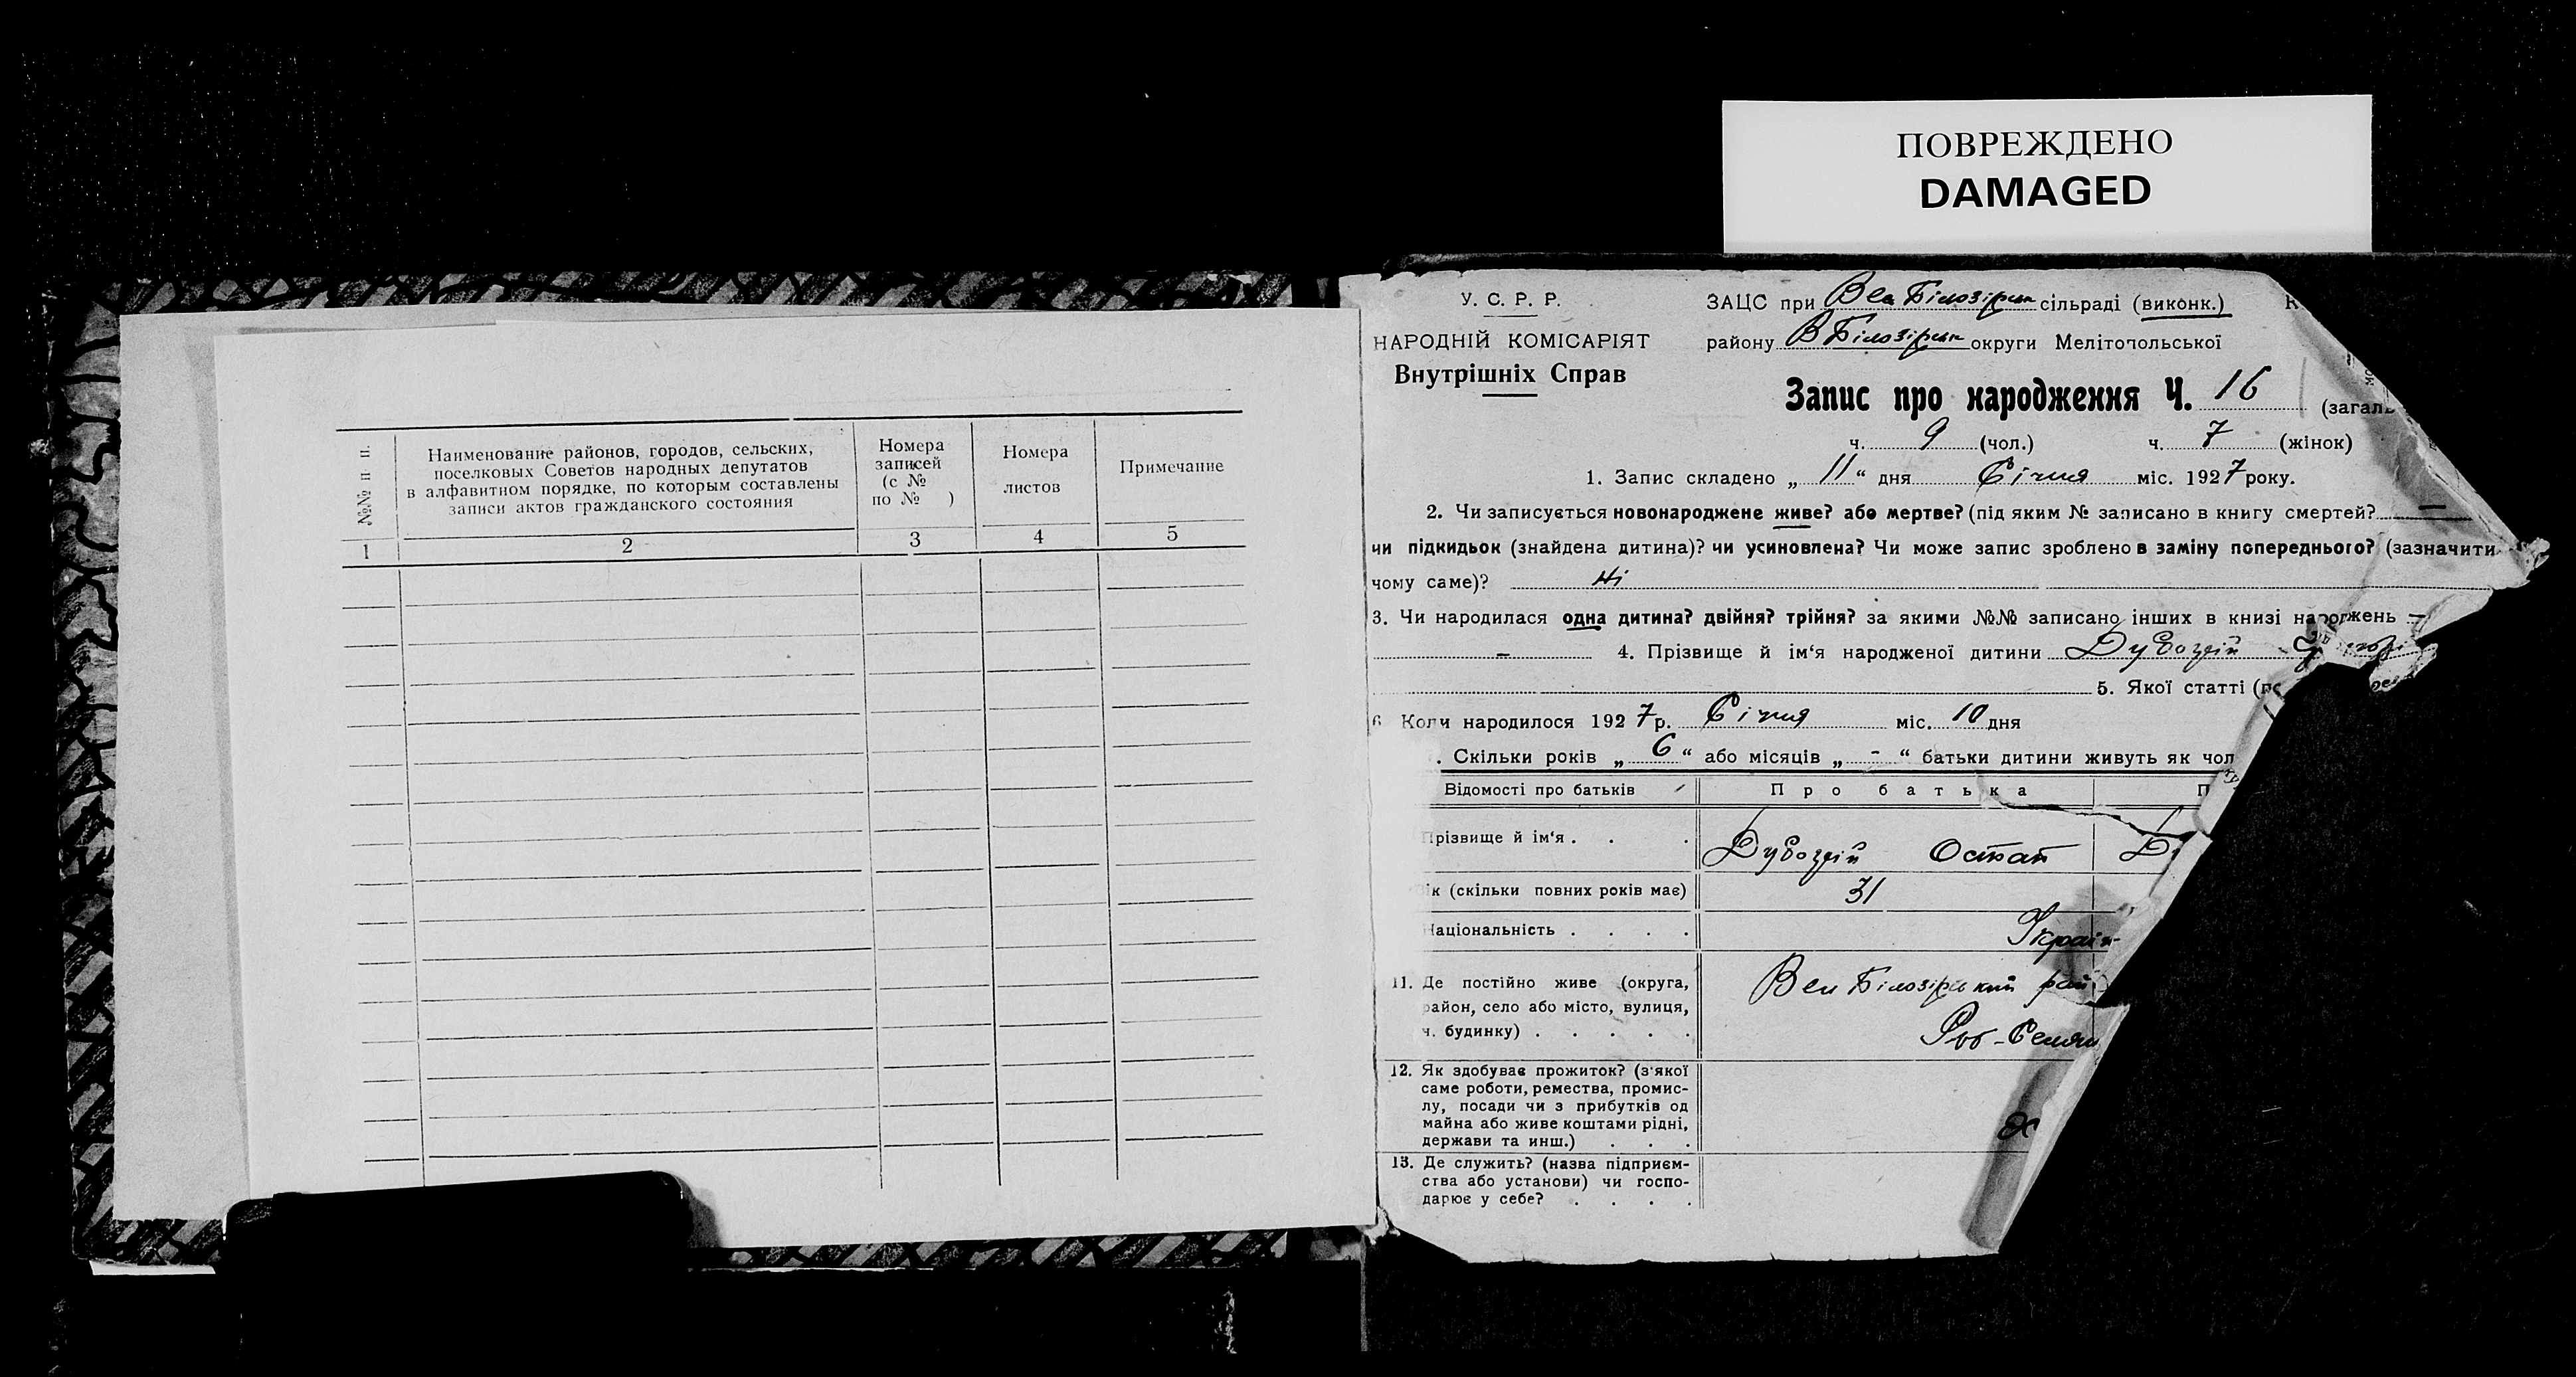 ПОВРЕЖДЕНО
DAMAGED
№№ п п.
Наименование районов, городов, сельских,
поселковых Советов народных депутатов
в алфавитном порядке, по которым составлены
записи актов гражданского состояния
Номера
записей
(с №
по № )
Номера
листов
Примечание
1 2 3 4 5
У. С. Р. Р.
НАРОДНІЙ КОМІСАРІЯТ
Внутрішніх Справ
ЗАЦС при Вел Білозірськ сільраді (виконк.)
району В Білозірськ округи Мелітопольської
Запис про народження Ч. 16 (загаль
ч. 9 (чол.) ч. 7 (жінок)
1. Запис складено „ 11 “ дня Січня міс. 1927 року.
2. Чи записується новонароджене живе? або мертве? (під яким № записано в книгу смертей? —
чи підкидьок (знайдена дитина)? чи усиновлена? Чи може запис зроблено в заміну попереднього? (зазначити
чому саме)? ні
3. Чи народилася одна дитина? двійня? трійня? за якими №№ записано інших в книзі народжень —
– 4. Прізвище й ім‘я народженої дитини
5. Якої статті (по
6. Коли народилося 1927 р. Січня міс. 10 дня
. Скільки років „ 6 “ або місяців „ - “ батьки дитини живуть як чол
Відомості про батьків Про батька П
Прізвище й ім‘я . . . Остап
ік (скільки повних років має) 31
Національність . . . . Україн-
11. Де постійно живе (округа,
район, село або місто, вулиця,
ч. будинку) . . . . .
Вел Білозірський рай
Роб-Селян
12. Як здобуває прожиток? (з‘якої
саме роботи, ремества, промис-
лу, посади чи з прибутків од
майна або живе коштами рідні,
держави та инш.) . . .
13. Де служить? (назва підприєм-
ства або установи) чи госпо-
дарює у себе? . . . .